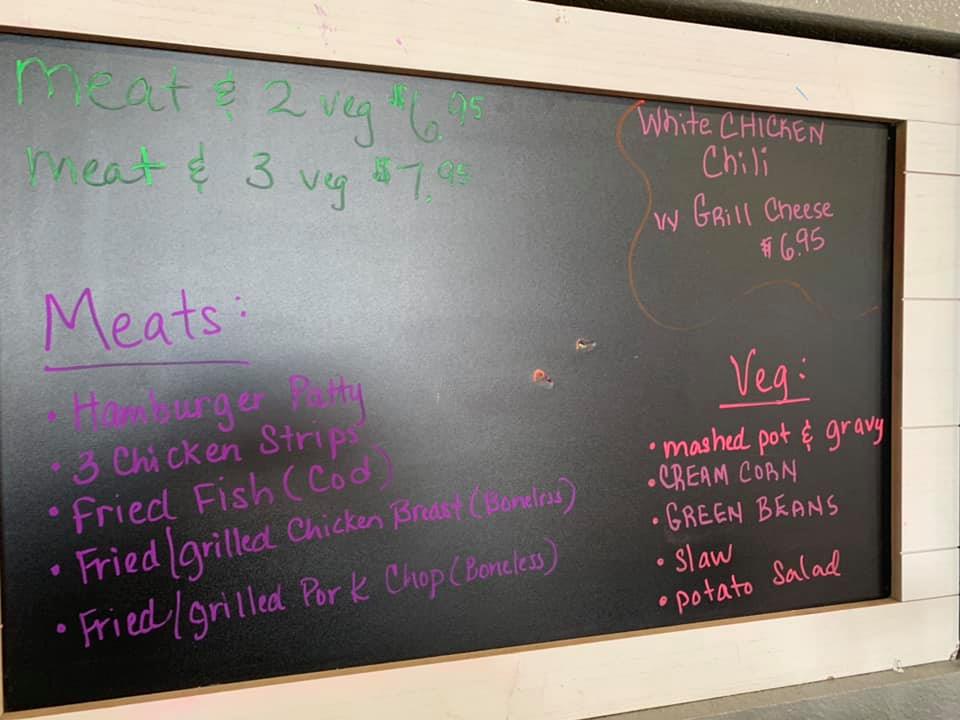 Meat & 2 veg $6.95
Meat & 3 veg $7.95
White CHICKEN
Chili
w/ GRill Cheese
$6.95
Meats:
• Hamburger Patty
• 3 Chicken Strips
• Fried Fish (Cod)
• Fried/grilled Chicken Breast (Boneless)
• Fried/grilled Pork Chop (Boneless)
Veg:
• mashed pot & gravy
• CREAM CORN
• GREEN BEANS
• Slaw
• potato Salad